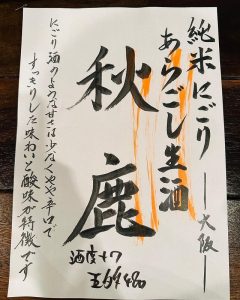 純米にごり
あらごし生酒
―大阪―
秋鹿
酒度+7
にごり酒のような甘さは少なくやや辛口で
すっきりした味わいと酸味が特徴です